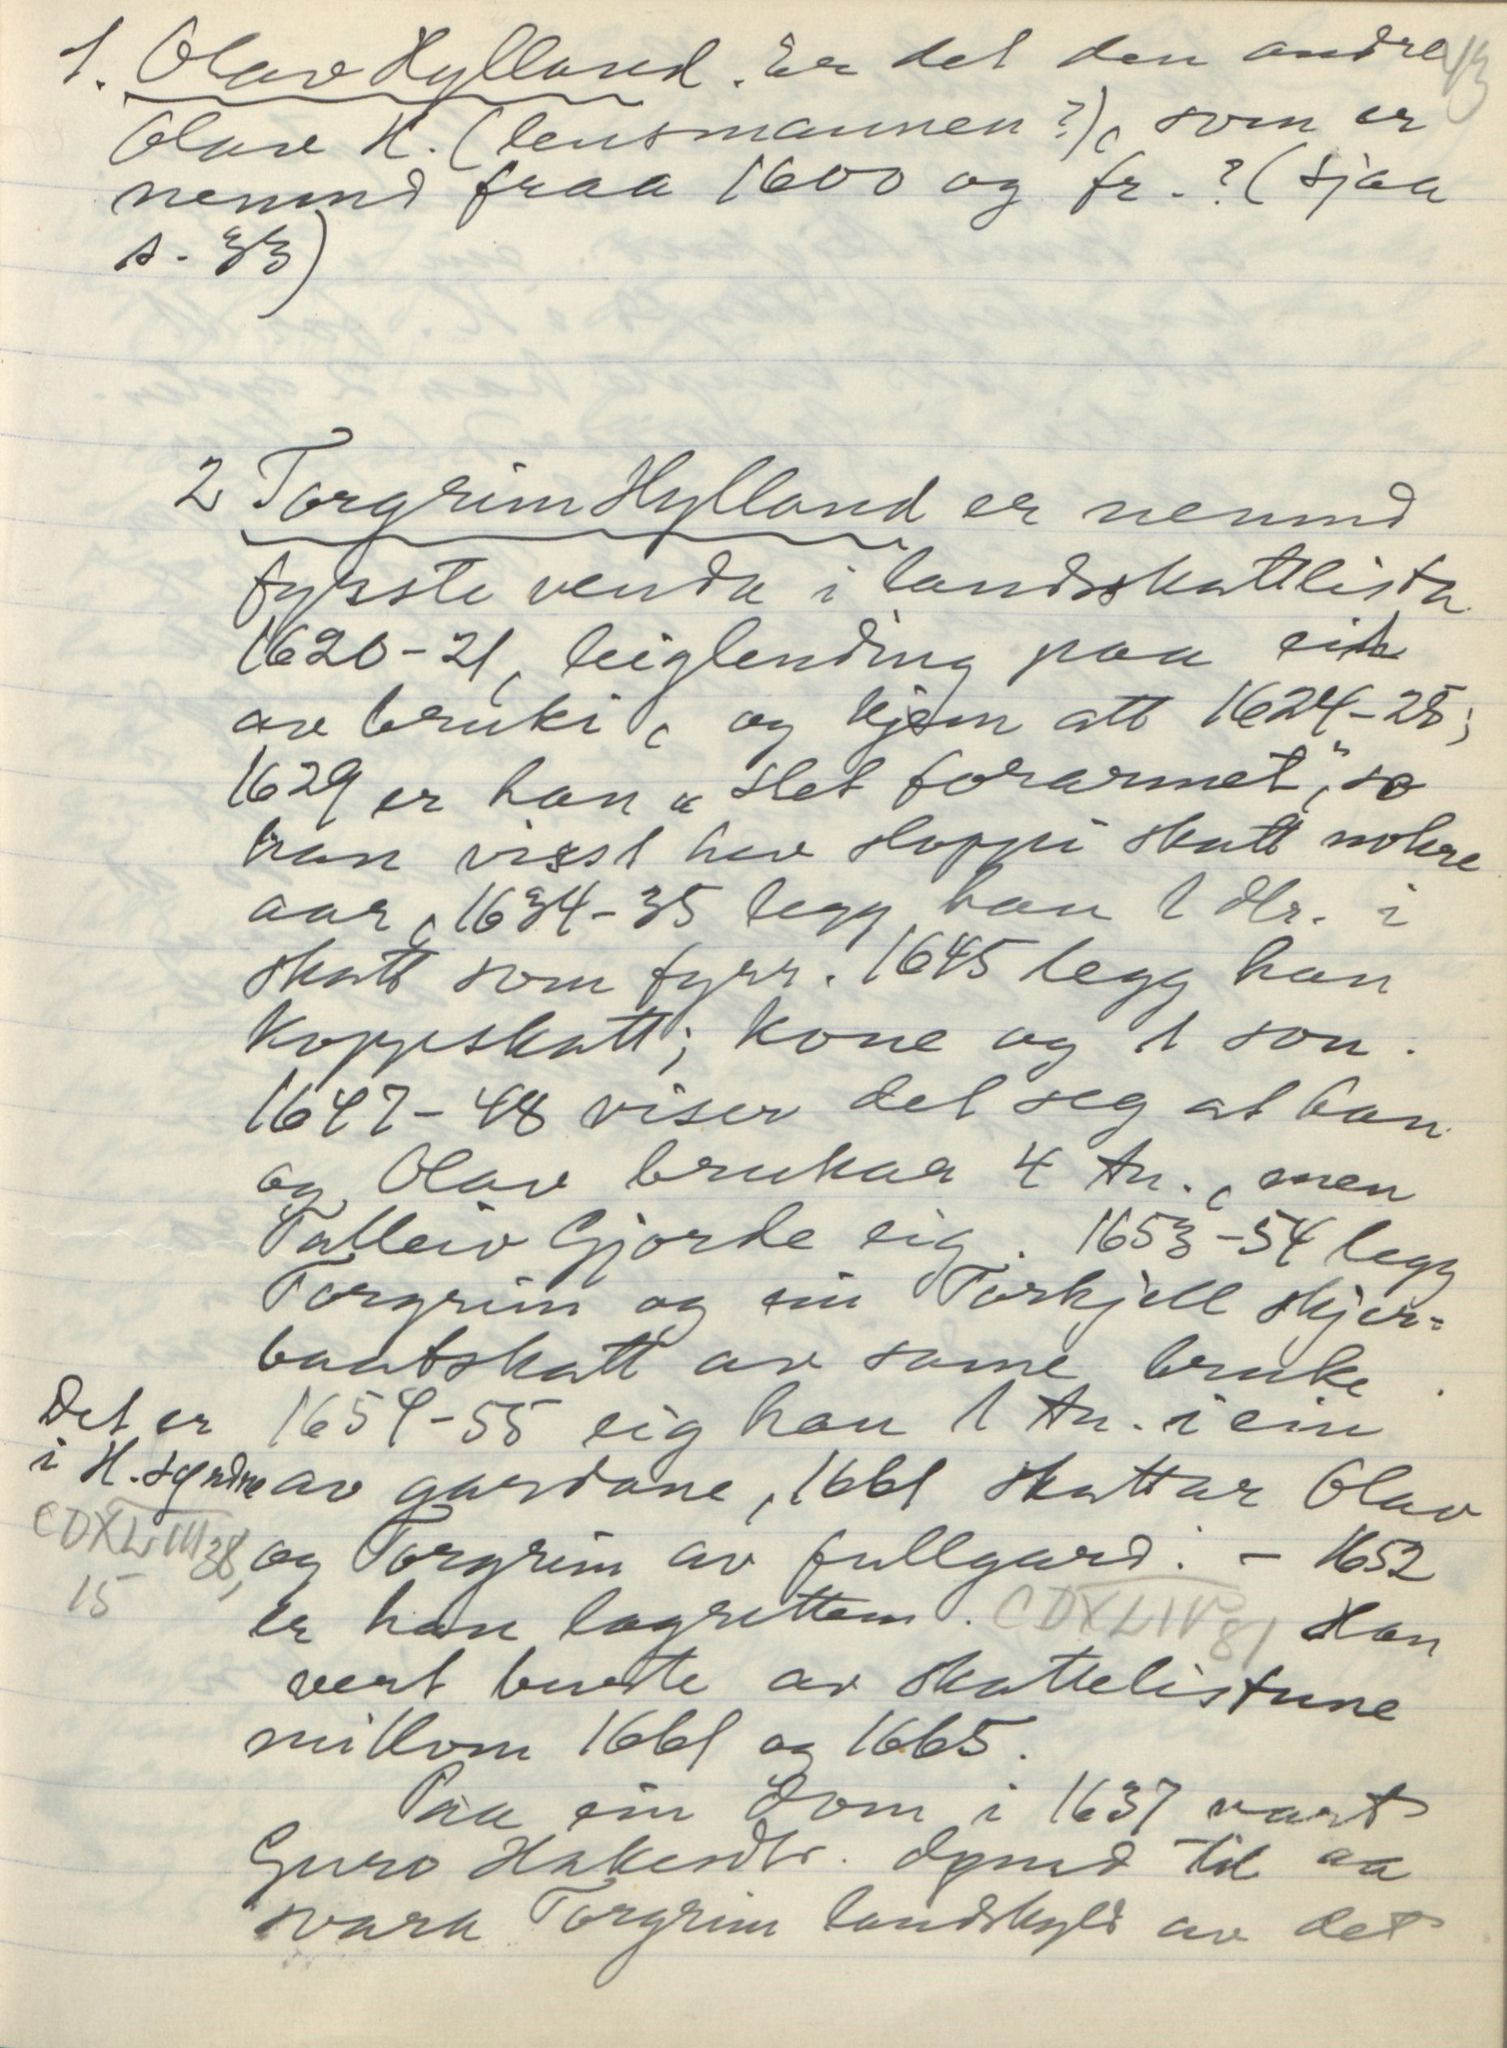 1. Olav Hylland. Er det den andre
Olav H. (lensmannen?), som er
nemnd fraa 1600 og fr.? (sjaa
s. 33)
2 Torgrim Hylland er nemnd
fyrste venda i landsskattlista
1620-21, leiglending paa eit
av bruki, og kjem att 1624-25;
1629 er han "slet forarmet", so
han visst hev sloppi skatt nokre
aar, 1634-35 legg han 1 dlr. i
skatt som fyrr. 1645 legg han
koppskatt; kone og 1 son.
1647-48 viser det seg at han
og Olav brukar 4 tn., men
Talleiv Gjorde eig. 1653-54 legg
Torgrim og ein Torkjell skjer-
baatskatt av same bruke.
1654-55 eig han 1 tn. i ein
av gardane, 1661 skattar Olav
og Torgrim av fullgard. - 1652
er han lagrettem. CDXLIV 81 Han
vert burte av skattelistune
millom 1661 og 1665.
Paa ein dom i 1637 vart
Guro Hakesdtr. dømd til aa
svara Torgrim landskyld av det
Det er
i H. syndre
CDXLIII 38,
15